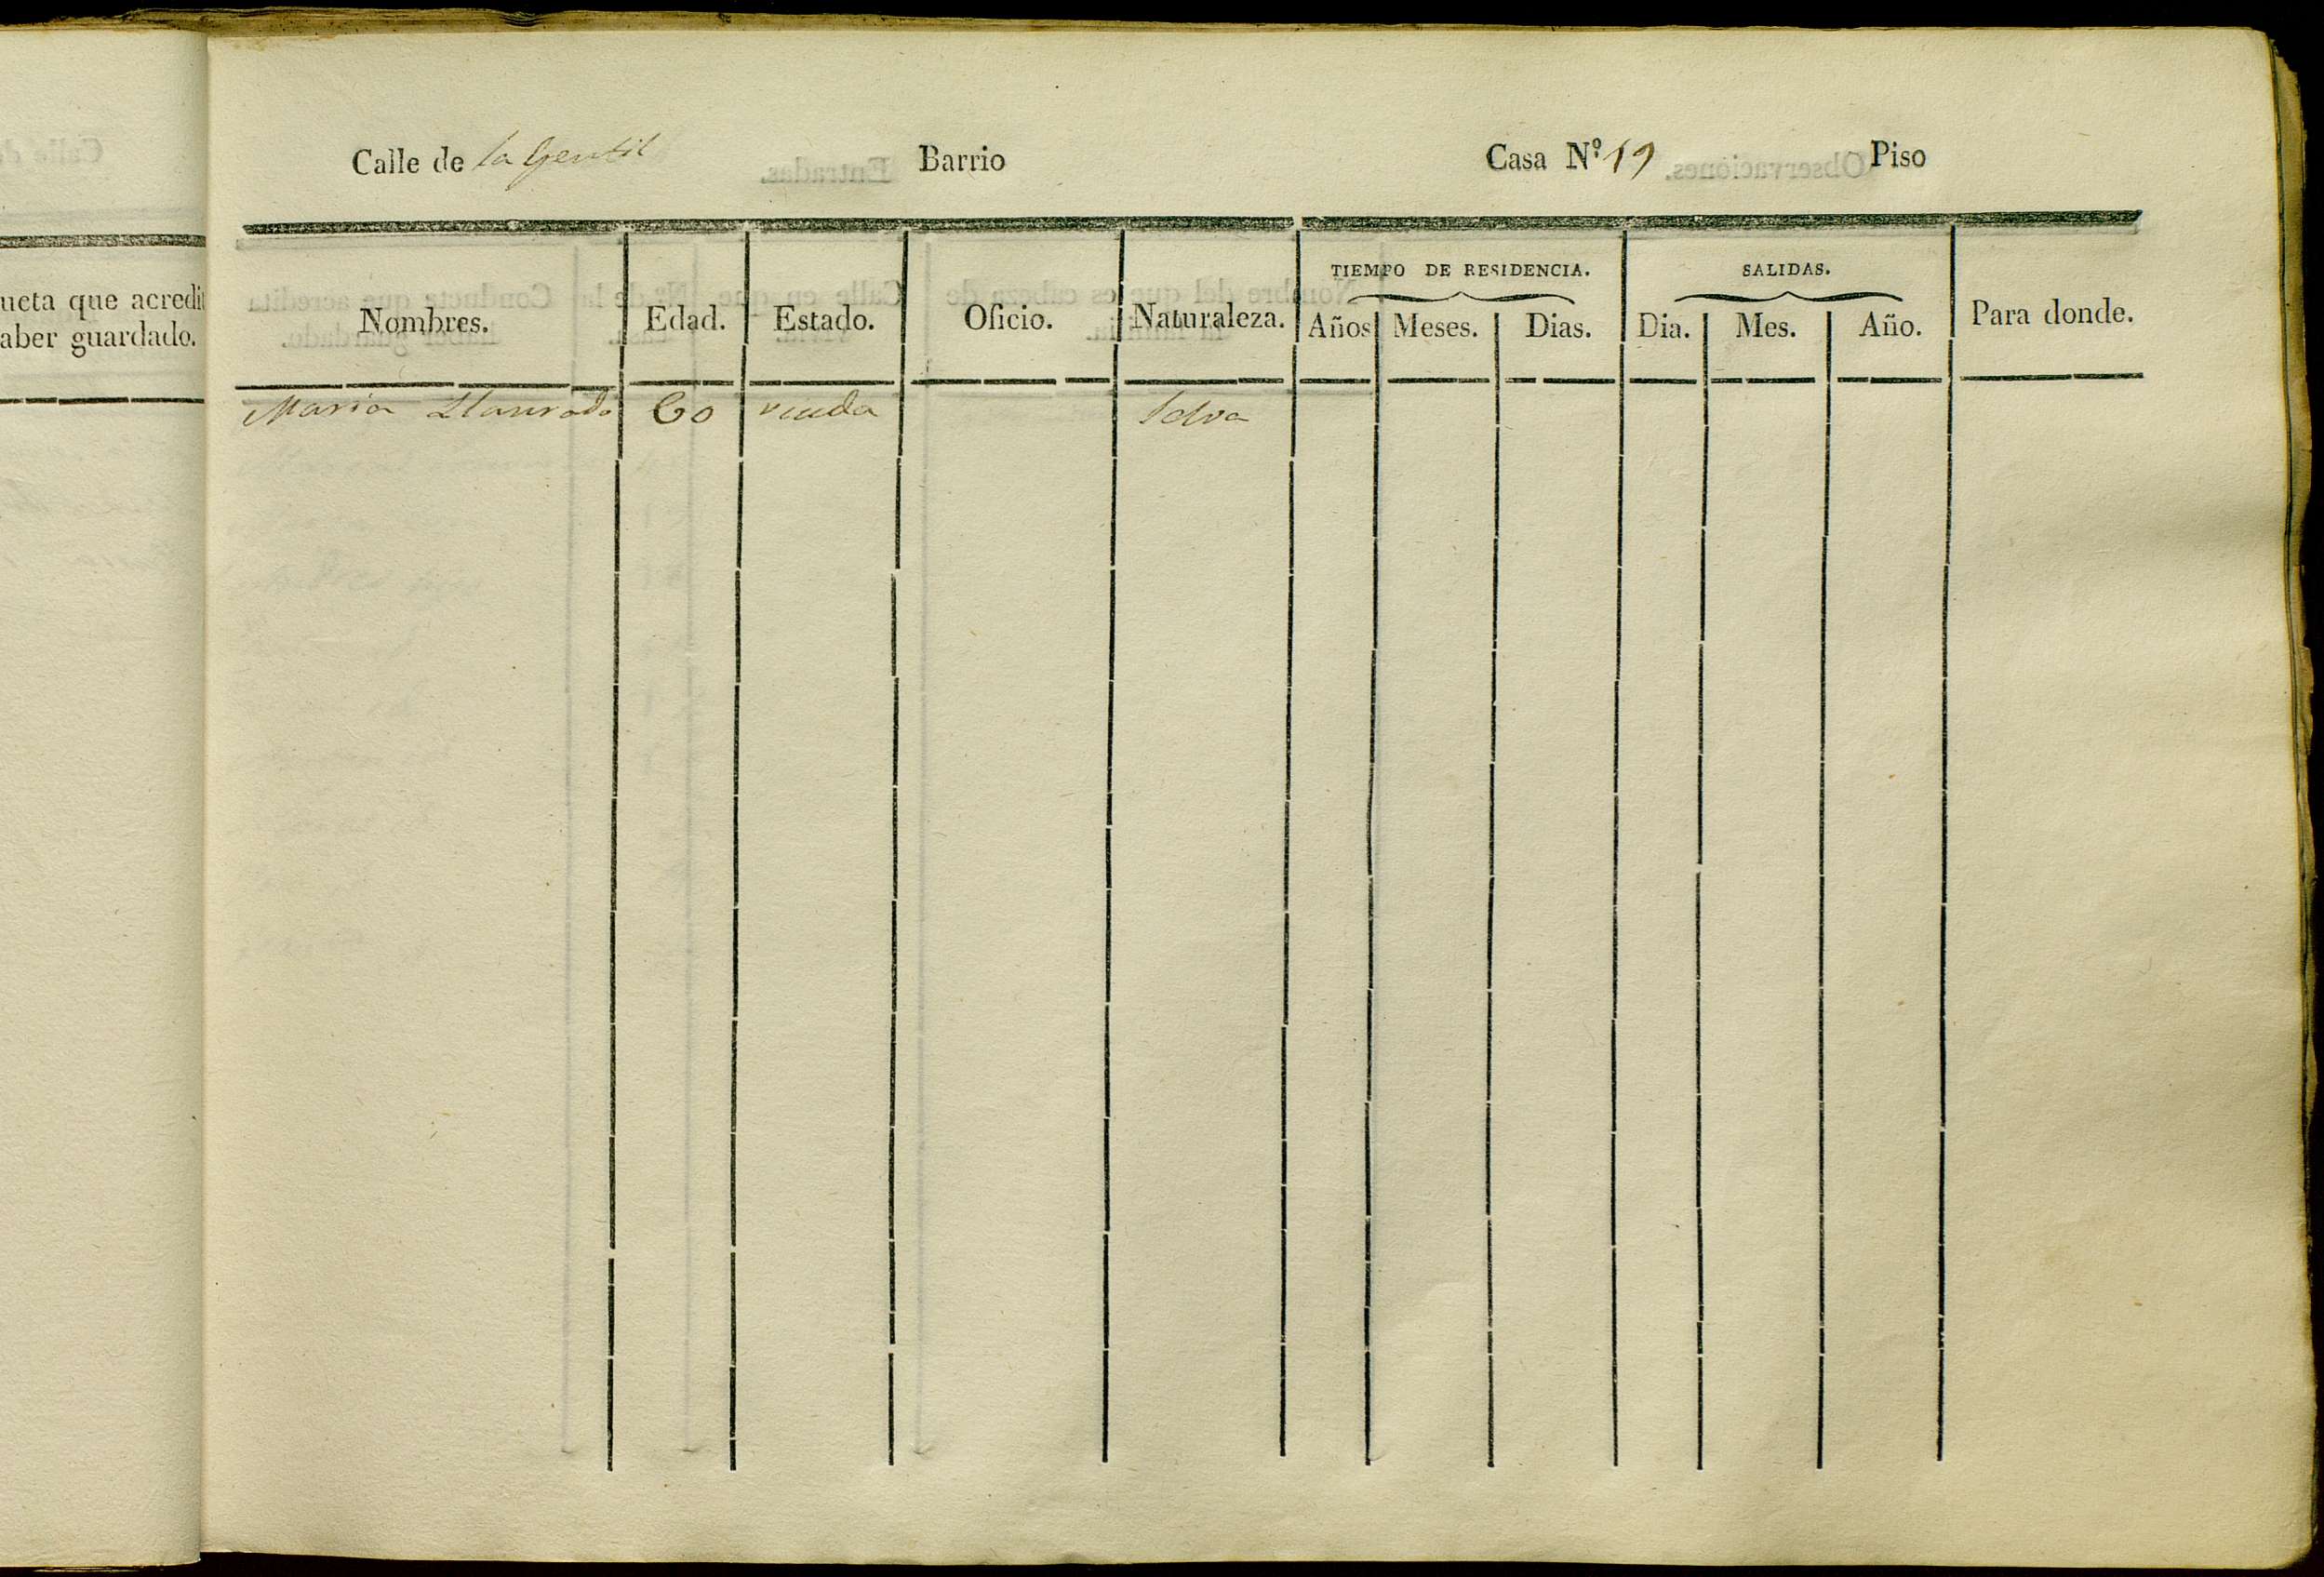 Calle de la Gentil Barrio Casa Nº 19 Piso
ucta que acredit
aber guardado.
TIEMPO DE RESIDENCIA. SALIDAS.
Nombres. Edad. Estado. Oficio. Naturaleza. Años Meses. Dias. Dia. Mes. Año. Para donde.
Maria Llaurado 60 viuda Selva